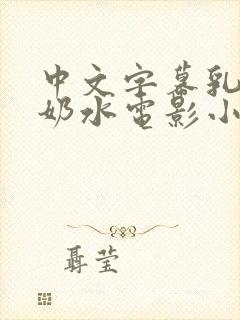 中文字幕乳
奶水电影小
聂莹